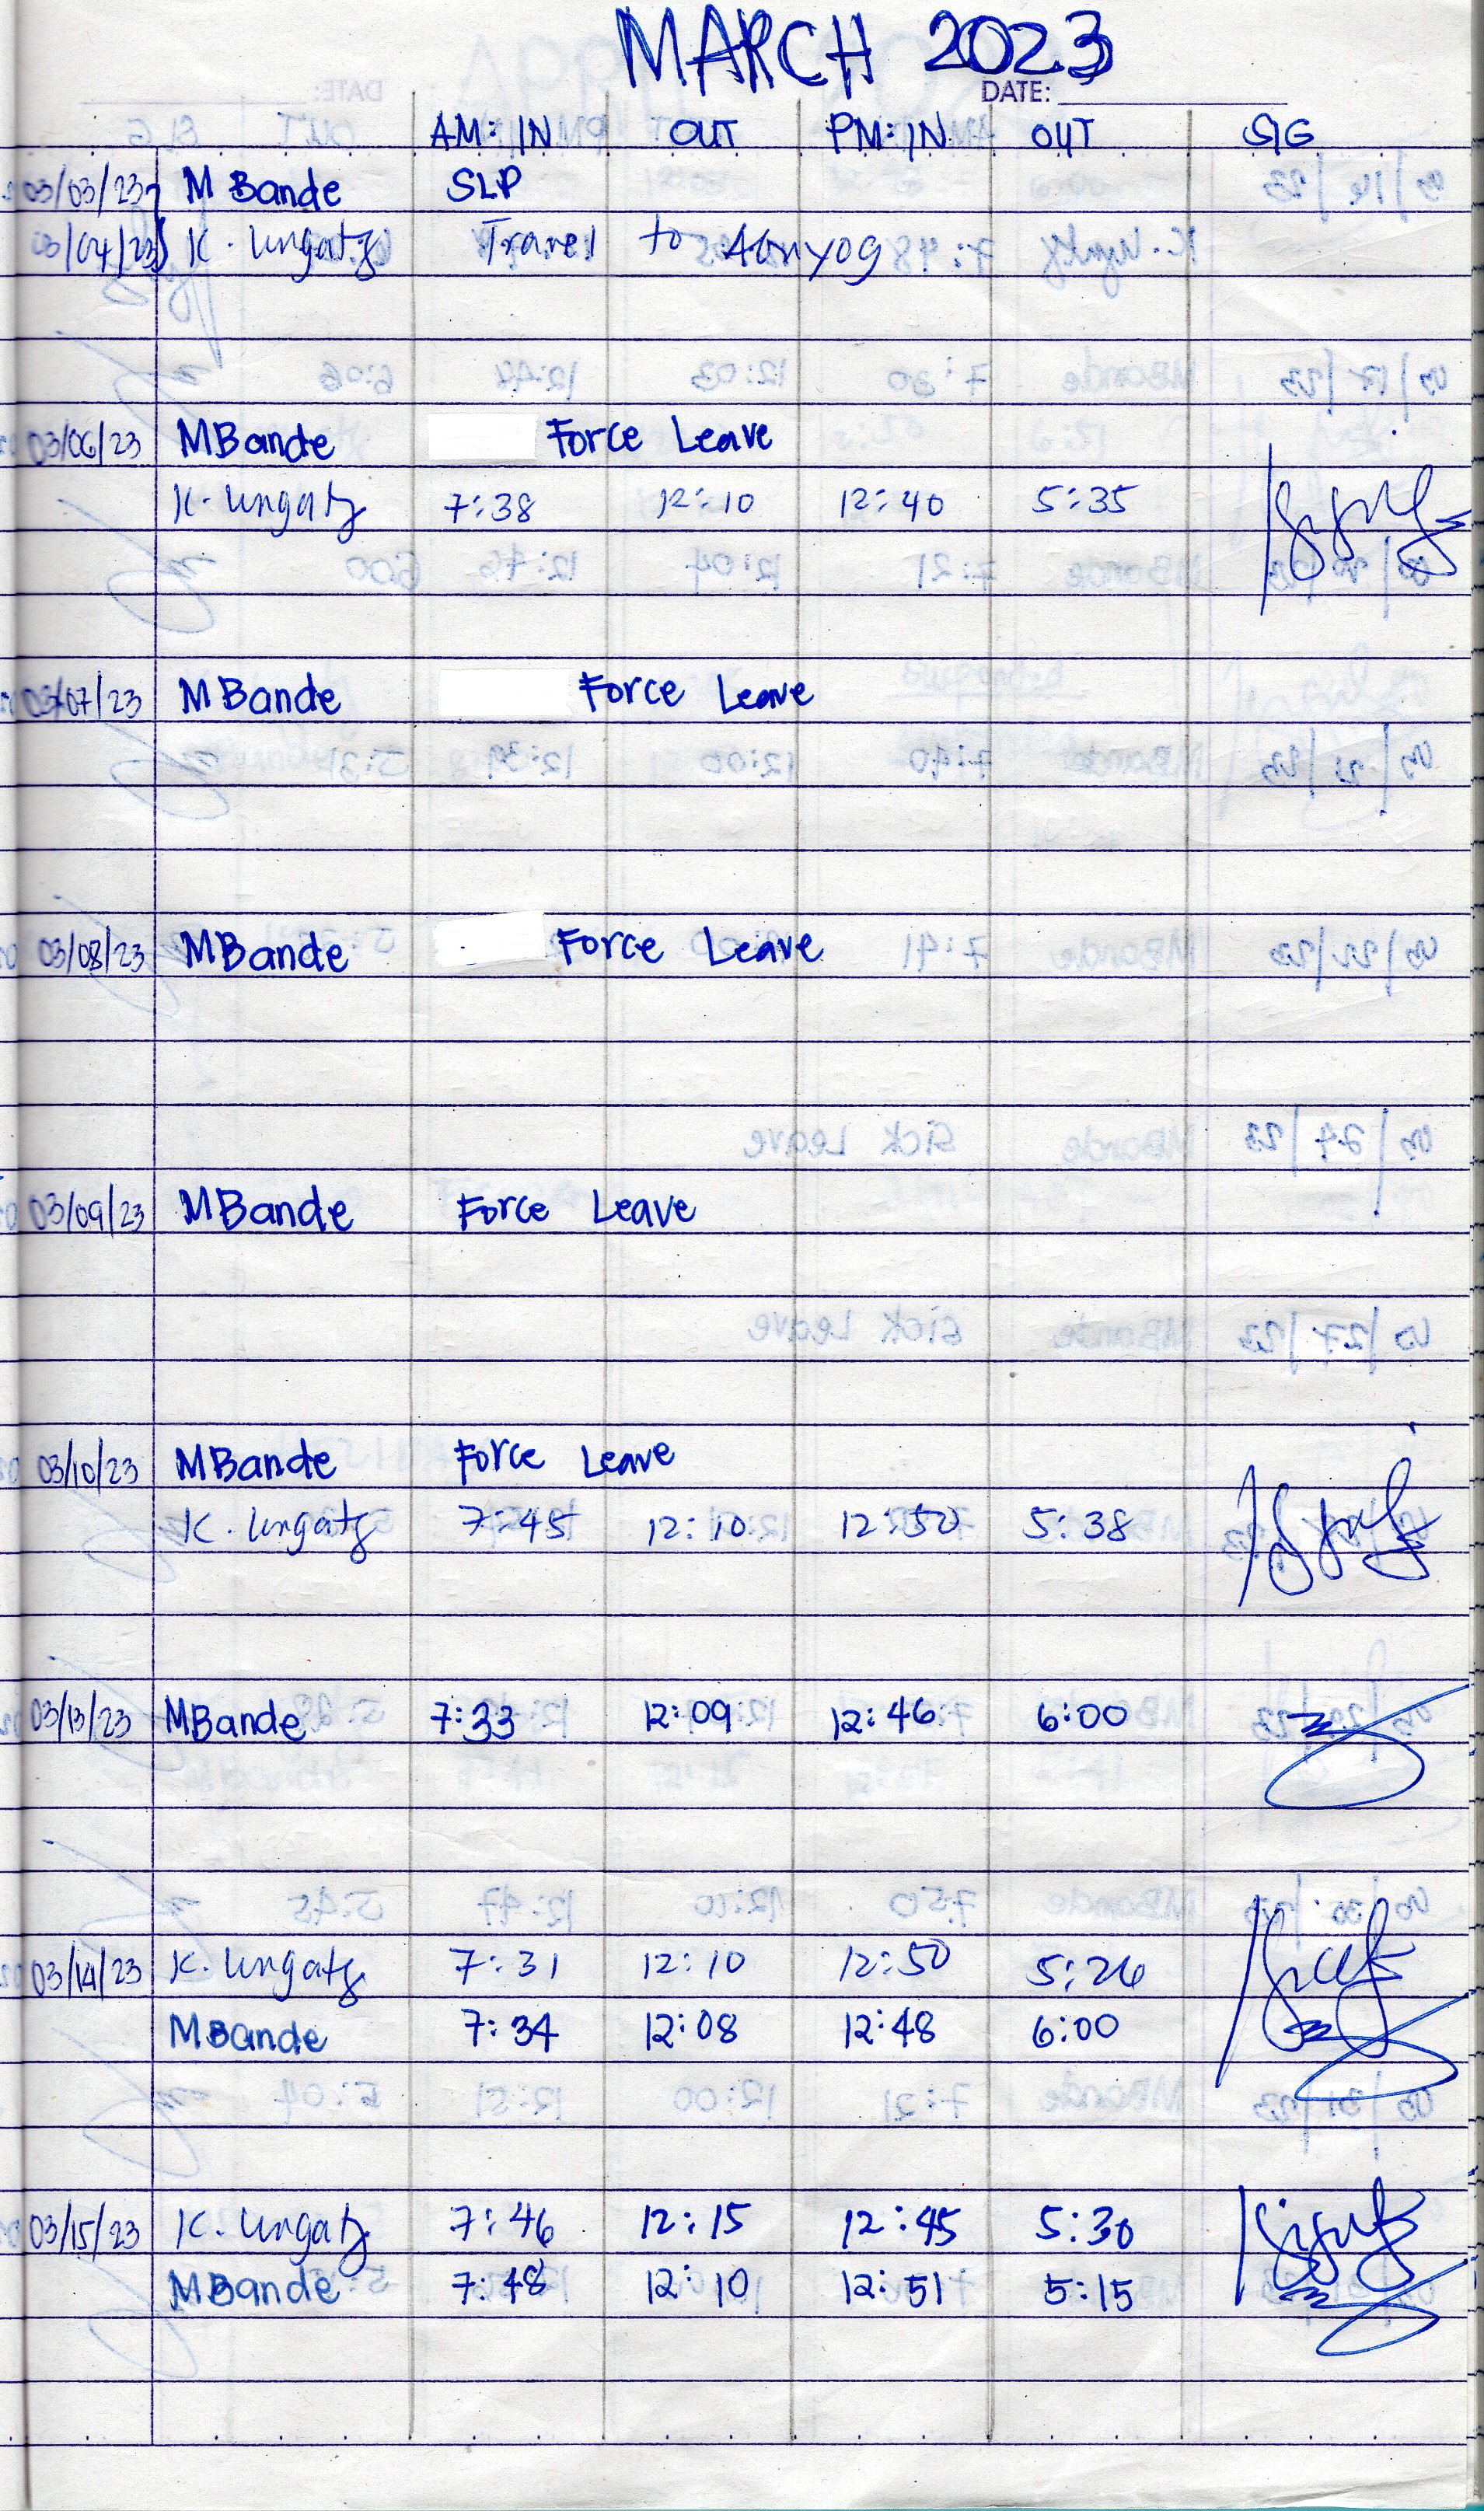 MARCH 2023
DATE:
AM: IN OUT PM: IN OUT SIG
03/03/23 M Bande SLP
03/04/23 K. Ungatz Travel to
03/06/23 MBande Force Leave
K. Ungatz 7:38 12:10 12:40 5:35
03/07/23 MBande Force Leave
03/08/23 MBande Force Leave
03/09/23 MBande Force Leave
03/10/23 MBande Force Leave
K. Ungatz 7:45 12:10 12:50 5:38
03/13/23 MBande 7:33 12:09 12:46 6:00
03/14/23 K. Ungatz 7:31 12:10 12:50 5:26
MBande 7:34 12:08 12:48 6:00
03/15/23 K. Ungatz 7:46 12:15 12:45 5:30
MBande 7:48 12:10 12:51 5:15